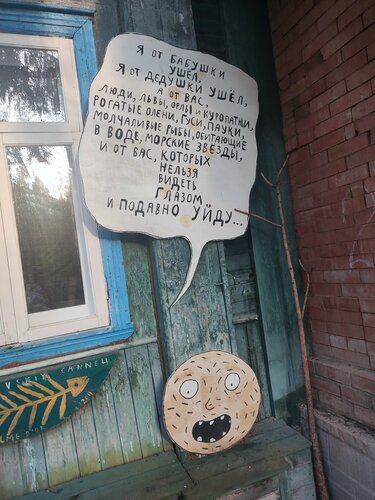 Я ОТ БАБУШКИ
УШЁЛ,
Я ОТ ДЕДУШКИ УШЁЛ,
А ОТ ВАС,
ЛЮДИ, ЛЬВЫ, ОРЛЫ И КУРОПАТКИ,
РОГАТЫЕ ОЛЕНИ, ГУСИ, ПАУКИ,
МОЛЧАЛИВЫЕ РЫБЫ, ОБИТАЮЩИЕ
В ВОДЕ, МОРСКИЕ ЗВЕЗДЫ,
И ОТ ВАС, КОТОРЫХ
НЕЛЬЗЯ
ВИДЕТЬ
ГЛАЗОМ
И ПОДАВНО УЙДУ...